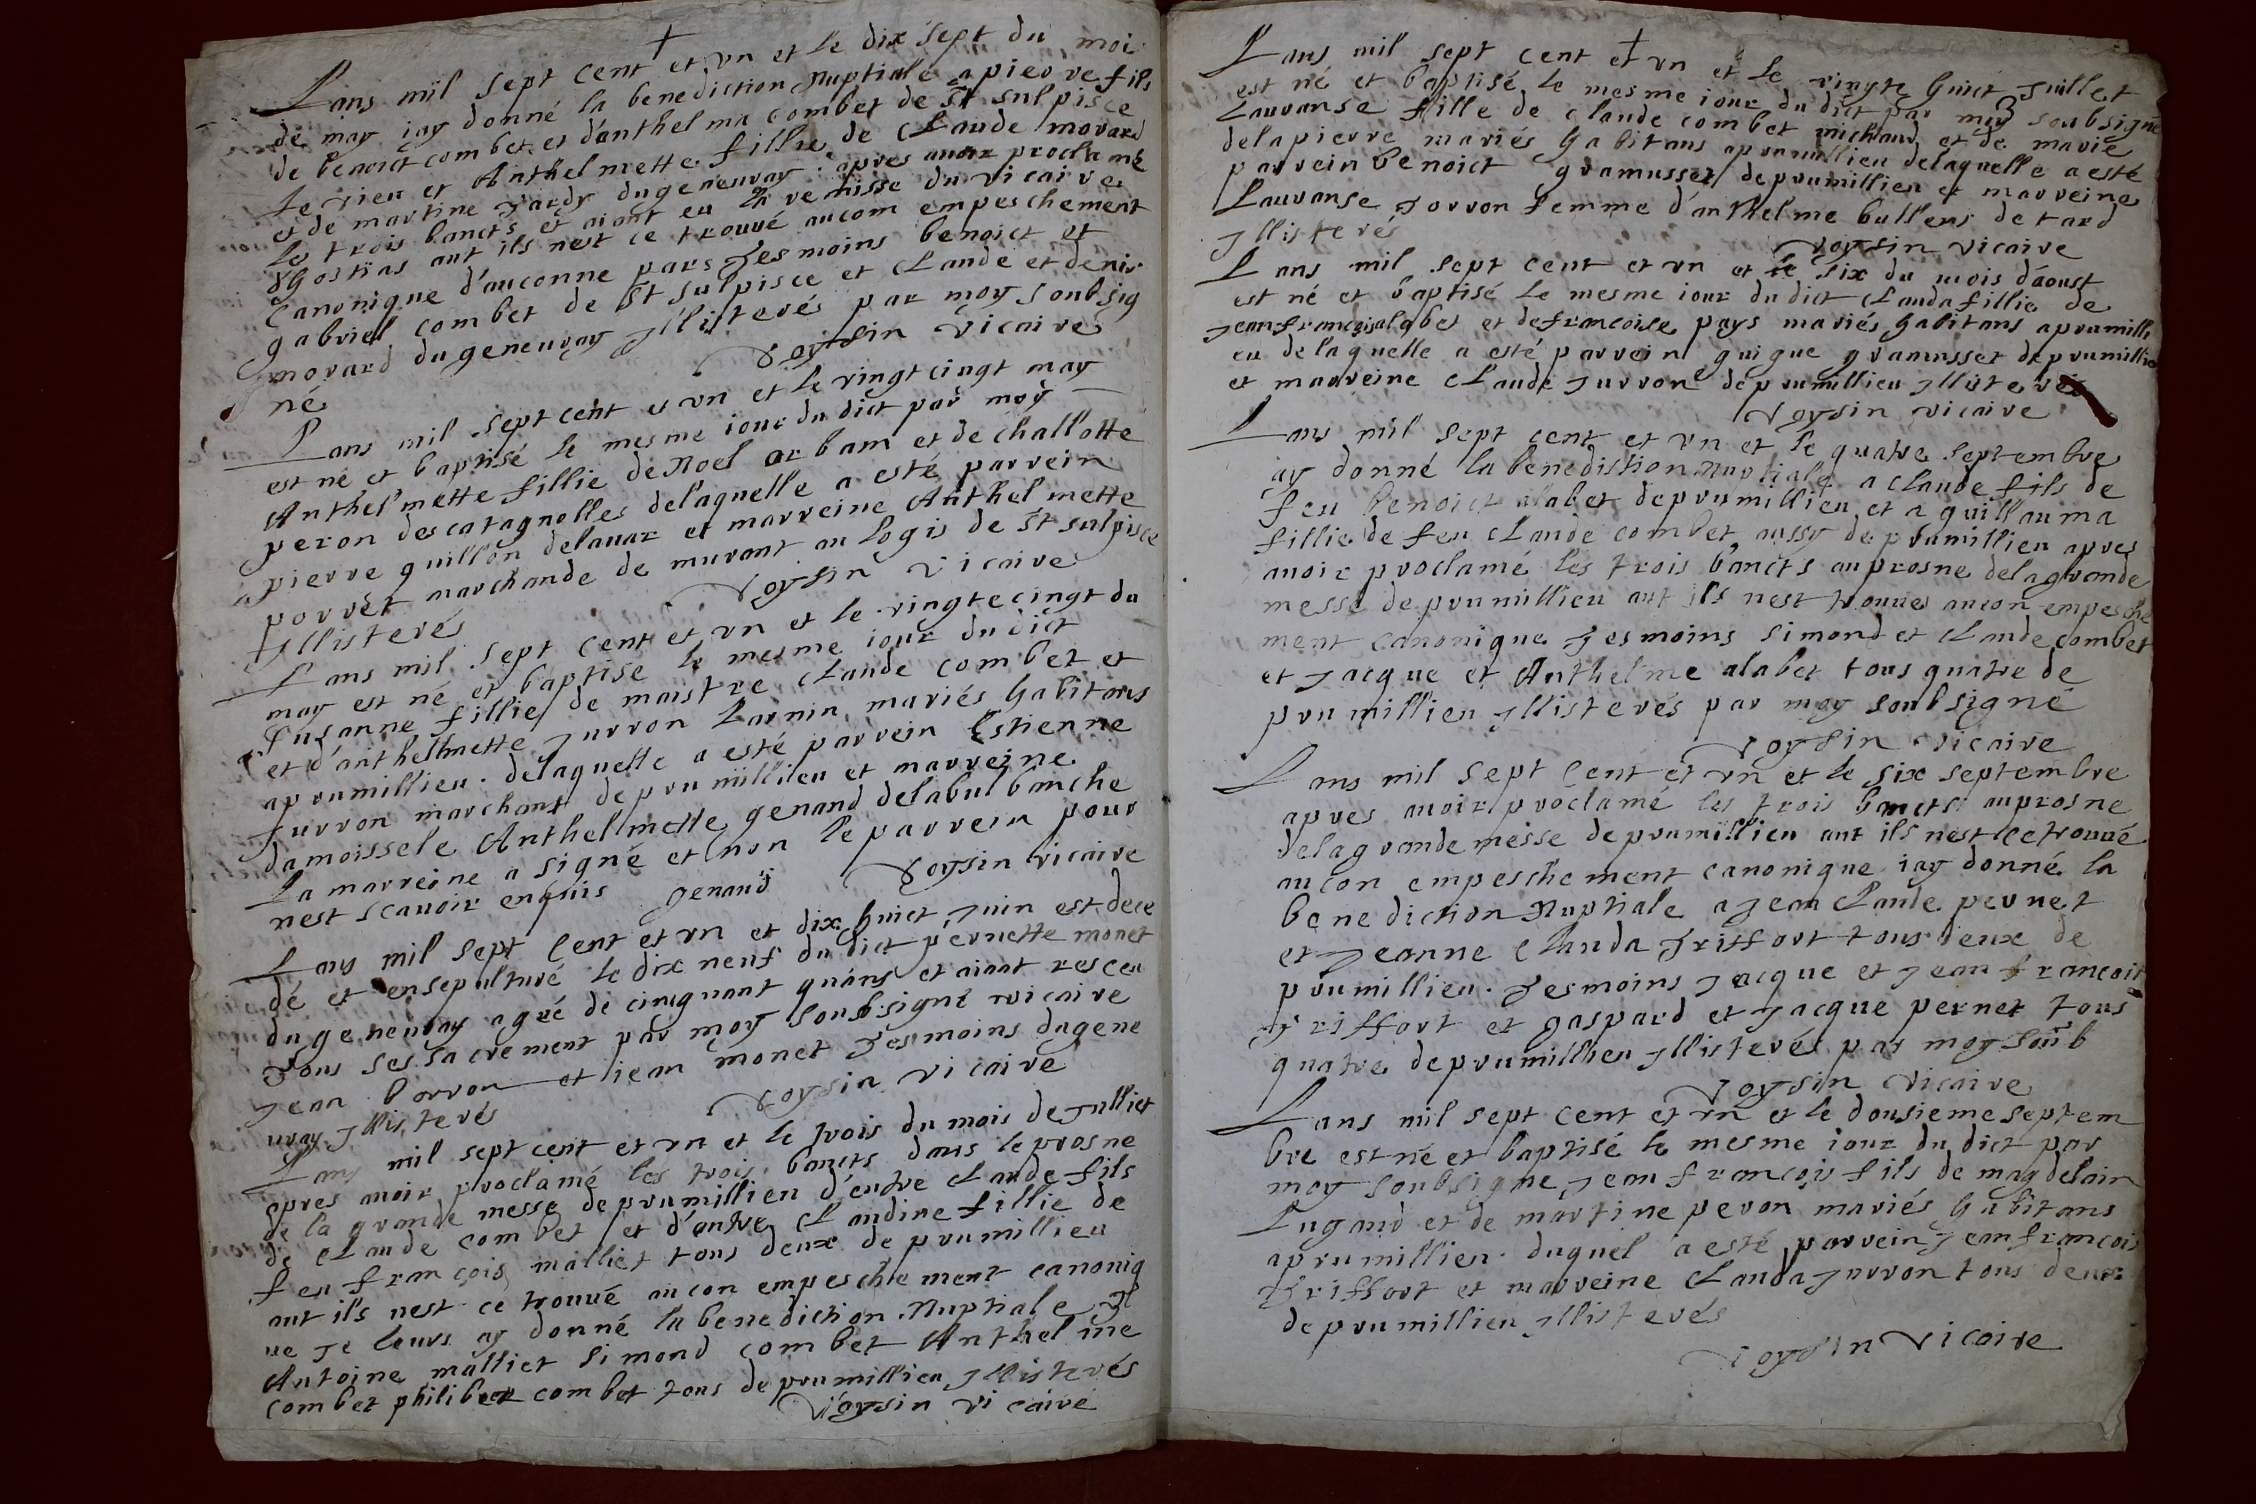 Lans mil sept cent et vn et le dix sept du moi
de may iay donné la benediction Nuptiale a pierre fils
de benoict combet et d'anthelma combet de St sulpisce
et Anthelmette fillie de Claude morard
et de martine jardy dugeneuray apres auoir proclamé
les trois bancts et aiant eu la remisse du vicaire
aut ils nest ce trouvé aucom empeschement
canonique d'auconne pars Tesmoins benoict et
gabriel combet de St sulpisce et Claude et denis
morard dugeneuray Illisterés par moy soubsig
né Voysin vicaire
Lans mil sept cent et vn et le vingt cingt may
est né et baptisé le mesme iour du dict par moy
Anthelmette fillie de Noel arbam et de challotte
peron des catagnolles delaquelle a esté parrein
pierre guillon delauar et marreine Anthelmette
porret marchande de murant au logis de St sulpisce
Illisterés Voysin vicaire
Lans mil sept cent et vn et le vingte cingt du
may est né et baptise le mesme iour du dict
Susanne fillie de maistre Claude combet et
et d'anthelmette Jurron Larnin mariés habitans
aprumillieu. delaquelle a esté parrein Estienne
Jurron marchant de prumillieu et marreine
damoissele Anthelmette genand delabulbanche
La marreine a signé et non le parrein pour
nest scauoir enquis genand Voysin vicaire
Lans mil sept Cent et vn et dix huict Juin est dece
dé et ensepulturé le dix neuf du dict pernette monet
dugeneuray agée de cinquant quans et aiant resceu
Tous ses sacrement par moy soubsigné vicaire
Jean borron et iean monet Tesmoins dugene
uray Illisterés Voysin vicaire
Lans mil sept cent et vn et le trois du mois de Julliet
apres auoir proclamé les trois bancts dans le prosne
de la grande messe de prumillieu d'entre Claude fils
de Claude combet et d'autre Claudine fillie de
feu françois malliet tous deux de prumillieu
aut ils nest ce trouué aucon empeschement canoniq
ue Je leurs ay donné la benediction Nuptiale
Antoine malliet simond combet Anthelme
combet philiber combet tous de prumillieu Illisterés
Voysin vicaire
Lans mil sept cent et vn et le vingte huict Juillet
est né et baptisé le mesme iour du dict par moy soubsigné
Lauranse fillie de claude combet michaud et de marie
delapierre mariés habitans aprumillieu delaquelle a esté
parrein benoict gramusset de prumillieu et marreine
Lauranse Jorron femme d'anthelme bullens de tard
Illisterés Voysin vicaire
Lans mil sept cent et vn et le six du mois d'aoust
est né et baptisé le mesme iour du dict Clauda fillie de
Jeanfrançois alabet et defrancoise pays mariés habitans a prumilli
eu delaquelle a esté parrein guigue gramusset deprumillieu
et marreine Claude Jurron de prumillieu Illisterés
Voysin vicaire
Lans mil sept cent et vn et le quatre septembre
ay donné la benedistion Nuptiale a claude fils de
feu benoict alabet deprumillieu et a guillauma
fillie de feu Claude combet aussy de prumillieu apres
auoir proclamé les trois bancts auprosne delagrande
messe de prumillieu aut ils nest trouué aucon empesche
ment canonique Tesmoins simond et Claude combet
et Jacque et Anthelme alabet tous quatre de
prumillieu Illisterés par moy soubsigné
Voysin vicaire
Lans mil sept Cent et vn et le six septembre
apres auoir proclamé les trois bancts auprosne
delagrande messe de prumillieu aut ils nest ce trouué
aucon empeschement canonique iay donné la
benediction Nuptiale a Jean Claude pernet
et Jeanne Clauda Friffort tous deux de
prumillieu. Tesmoins Jacque et Jean françois
Friffort et gaspard et Jacque pernet tous
quatre deprumillieu Illisterés par moy soub
Voysin vicaire
Lans mil sept cent et vn et le dousieme septem
bre est né et baptisé le mesme iour du dict par
moy soubsigne Jean francois fils de magdelain
Lugand et de martine peron mariés habitans
aprumillieu. duquel a esté parrein Jean francois
Friffort et marreine Clauda Jurron tous deux
de prumillieu Illisterés
Voysin vicaire